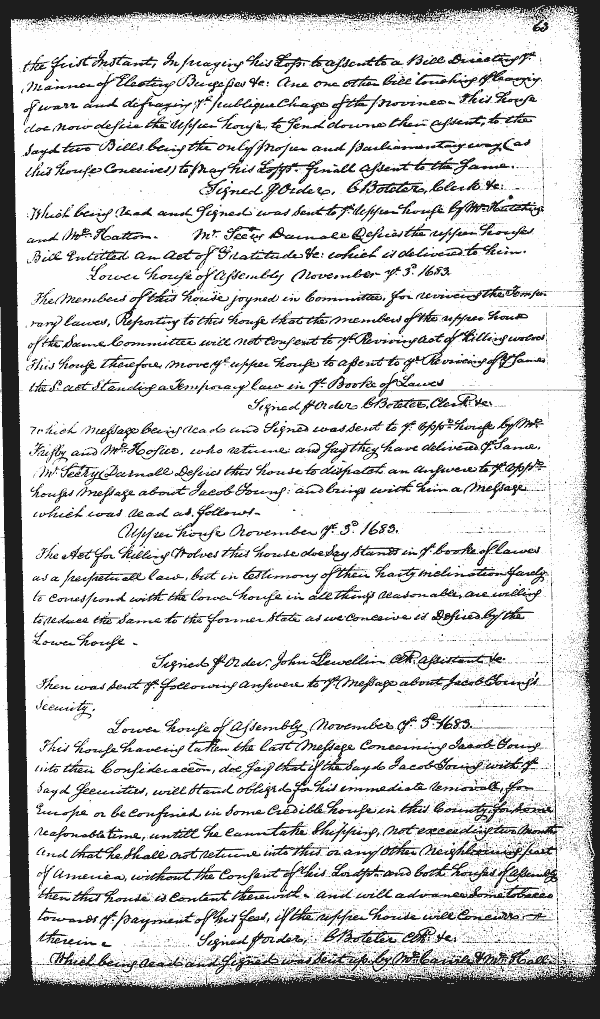 63
the first Instant, In praying his Lopp to assent to a Bill Directing ye
Manner of Electing Burgesses &c: And one other bill touching
of warr and defraying ye publique Charge of the province This house
doe now desire the Upper house, to Send downe their assent, to the
sayd two Bills being the only proper and parliamentary way, (as
this house Conceives) to pray his Lopps finall assent to the Same.
Signed p Order, C Boteler, Clerk &c.
Which being read and Signed was sent to ye Upper house by Mr
and Mr Hatton. Mr Secry Darnall Desires the upper houses
Bill Entitled an Act of Gratitude &c: which is delivered to him.
Lower house of Assembly November ye 3d 1683.
The Members of this house joyned in Committee, for reviveing the Tempo
rary lawes, Reporting to this house that the members of the upper house
of the Same Committee will not Consent to ye Reviving act of Killing wolves
This house therefore move ye upper house to assent to ye Reviveing of ye Same
the sd act Standing a Temporary law in ye Booke of Lawes
Signed p Order C Boteler, Clerk &c.
which message being read and Signed was sent to ye Uppr house by Mr
and Mr Hosier, who returne and say they have delivered ye Same.
Mr Secry Darnall Desires this house to dispatch an answere to ye Uppr
houses Message about Jacob Young: and brings with him a Message
which was read as follows.
Upper house November ye 3d 1683.
The Act for killing Wolves this house doe Say Stands in ye booke of lawes
as a perpetuall law, but in testimony of their harty inclination
to correspond with the lower house in all things reasonable, are willing
to reduce the Same to the former State as we conceive is Desired by the
Lower house.
Signed p Order. John Llewellin Clk assistant &c
Then was sent ye following answere to ye Message about Jacob Young's
Security.
Lower house of Assembly November ye 3d 1683.
This house haveing taken the last Message Concerning Jacob Young
into their Consideracon, doe Say that if the Sayd Jacob Young with ye
Sayd Securities, will Stand obliged for his immediate removall, for
Europe or be confined in Some Credible house in this County, for Some
reasonable time, untill he cann take Shipping, not exceeding two Months
And that he Shall not returne into this or any other Neighbouring part
of America, without the Consent of his Lordspp and both houses of Assembly
then this house is content therewith and will advance Some tobacco
towards ye payment of his fees, if the upper house will Concurr
therein Signed p order, C Boteler Clk &c.
Which being read and Signed was Sent up by Mr & Mr Hall.